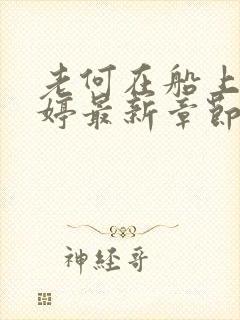 老何在船上
婷最新章节
神经哥